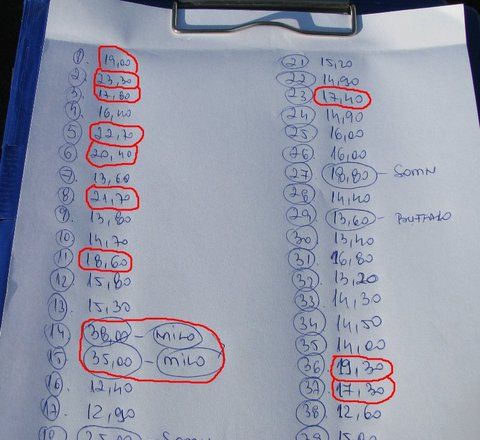 1. 19,00
2. 23,30
3. 17,80
4. 16,40
5. 22,70
6. 20,40
7. 13,60
8. 21,70
9. 13,80
10 14,70
11. 18,60
12. 15,80
13. 15,30
14. 38,00 - MIKO
15. 35,00 - MIKO
16. 12,40
17. 12,90
18 25,00
21 15,20
22 14,90
23 17,40
24 14,90
25 16,00
26 16,00
27 18,80 - SOMN
28 14,40
29 13,60 - BUFFALO
30. 13,40
31. 16,80
32. 13,20
33. 14,30
34 14,50
35 14,00
36. 19,30
37. 17,30
38. 12,60